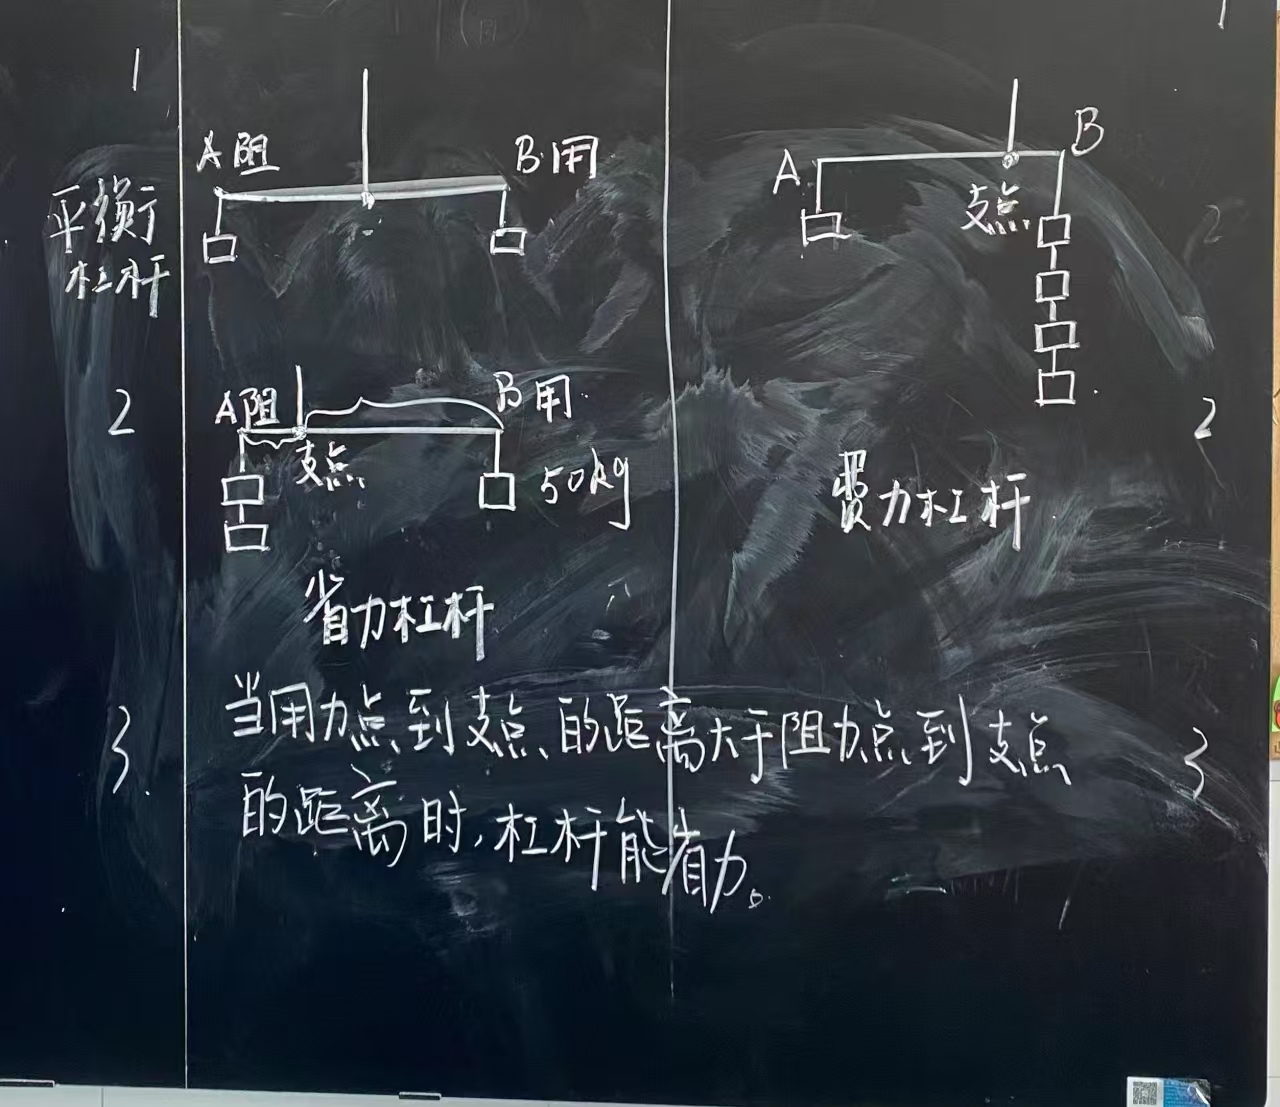 1
A阻
B用
A
B
平衡
杠杆
支点
2
A阻
B用
支点
50kg
2
费力杠杆
省力杠杆
3
当用力点到支点的距离大于阻力点到支点
的距离时,杠杆能省力。
3